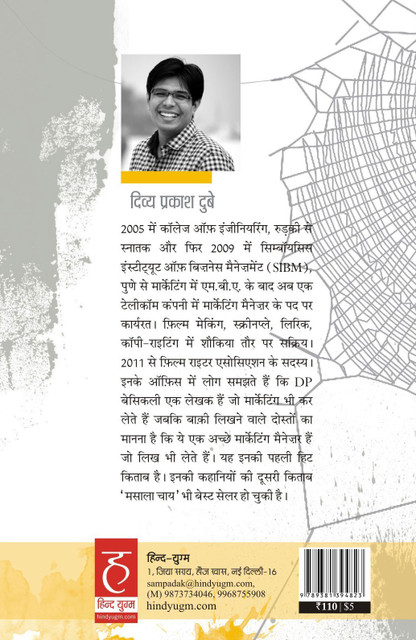 दिव्य प्रकाश दुबे
2005 में कॉलेज ऑफ़ इंजीनियरिंग, रुड़की से
स्नातक और फिर 2009 में सिम्बॉयसिस
इंस्टीट्यूट ऑफ़ बिज़नेस मैनेज़मेंट (SIBM),
पुणे से मार्केटिंग में एम.बी.ए. के बाद अब एक
टेलीकॉम कंपनी में मार्केटिंग मैनेज़र के पद पर
कार्यरत। फ़िल्म मेकिंग, स्क्रीनप्ले, लिरिक,
कॉपी-राइटिंग में शौकिया तौर पर सक्रिय।
2011 से फ़िल्म राइटर एसोसिएशन के सदस्य।
इनके ऑफ़िस में लोग समझते हैं कि DP
बेसिकली एक लेखक हैं जो मार्केटिंग भी कर
लेते हैं जबकि बाक़ी लिखने वाले दोस्तों का
मानना है कि ये एक अच्छे मार्केटिंग मैनेज़र हैं
जो लिख भी लेते हैं। यह इनकी पहली हिट
किताब है। इनकी कहानियों की दूसरी किताब
‘मसाला चाय’ भी बेस्ट सेलर हो चुकी है।
ह
हिन्द युग्म
hindyugm.com
हिन्द-युग्म
1, जिया सराय, हौज़ ख़ास, नई दिल्ली-16
sampadak@hindyugm.com
(M) 9873734046, 9968755908
hindyugm.com
9789381394823
₹110 | $5